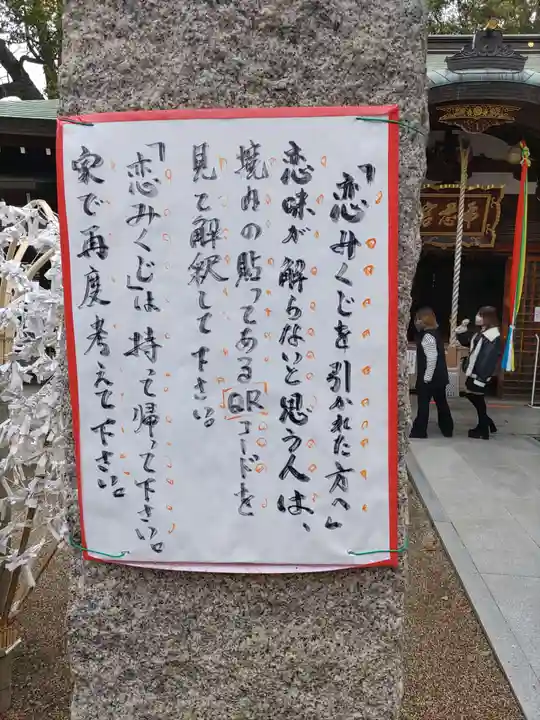 「恋みくじを引かれた方へ」
恋味が解らないと思う人は、
境内の貼ってあるQRコードを
見て解釈して下さい。
「恋みくじ」は持って帰って下さい。
家で再度考えて下さい。